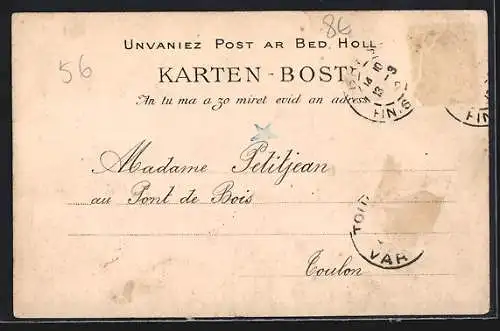 86
56
Unvaniez Post ar Bed Holl
KARTEN-BOST
An tu ma a zo miret evid an adress
FINIS
FIN
Madame Petitjean
au Pont de Bois
Toulon
VAR